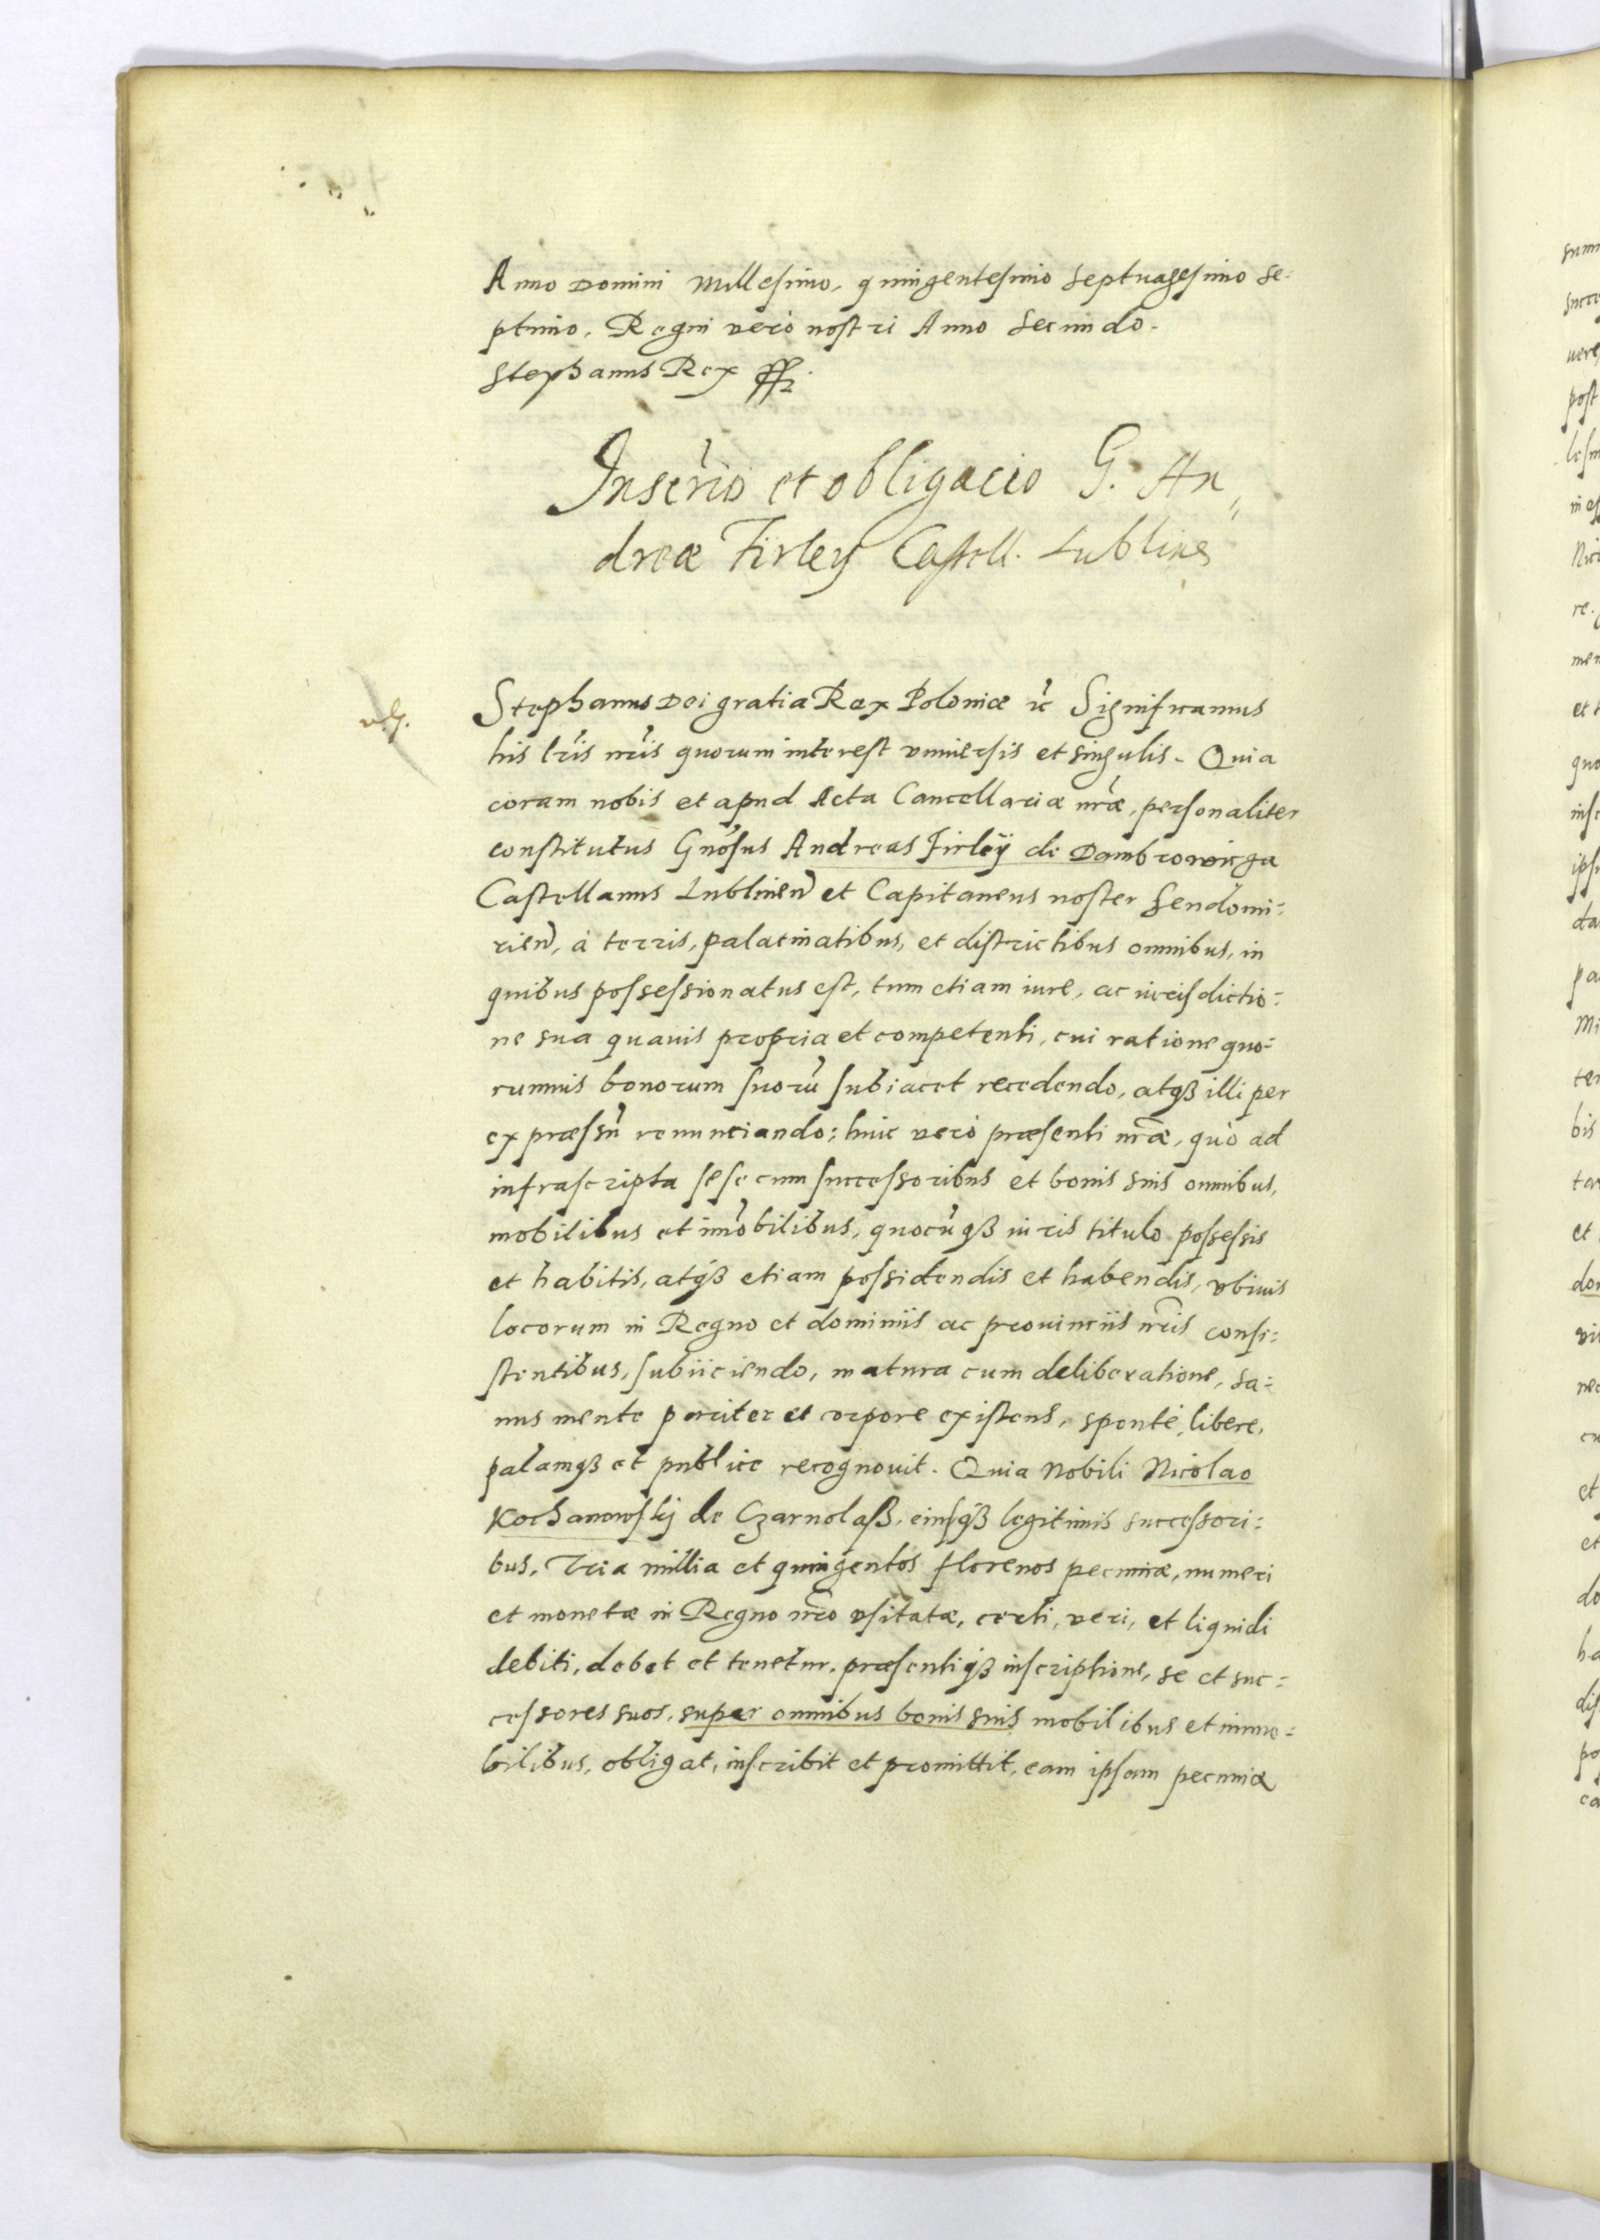 Anno Domini Millesimo, quingentesimo Septuagesimo Se-
ptimo. Regni vero nostri Anno Secundo.
Stephanus Rex
Inscrio et obligacio G. An„
dreae Firley Castell. Lublinen
Stephanus Dei gratia Rex Poloniæ etc Significamus
his lris nris quorum interest vniuersis et singulis. Quia
coram nobis et apud Acta Cancellariæ nræ, personaliter
constitutus Gnosus Andreas Firleÿ de Dambrowicza
Castellanus Lublinen et Capitaneus noster Sendomi=
rien, à terris, palatinatibus, et districtibus omnibus, in
quibus possessionatus est, tum etiam iure, ac iurisdictio=
ne sua quauis propria et competenti, cui ratione quo=
rumuis bonorum suorū subiacet recedendo, atqз illi per
expræssū renunciando: huic verò præsenti nræ, quò ad
infrascripta sese cum successoribus et bonis suis omnibus,
mobilibus et imobilibus, quocūqз iuris titulo possessis
et habitis, atqз etiam possidendis et habendis, vbiuis
locorum in Regno et dominiis ac prouinciis nris consi=
stentibus, subiiciendo, matura cum deliberatione, sa=
nus mente pariter et corpore existens, sponte, libere,
palamqз et publice recognouit. Quia Nobili Nicolao
Kochanowskij de Czarnolaß, eiusqз legitimis successori=
bus, Tria millia et quingentos florenos pecuniæ, numeri
et monetæ in Regno nro vsitatæ, certi, veri, et liquidi
debiti, debet et tenetur. præsentiqз inscriptione, se et suc=
cessores suos, super omnibus bonis suis mobilibus et immo=
bilibus, obligat, inscribit et promittit, eam ipsam pecuniæ